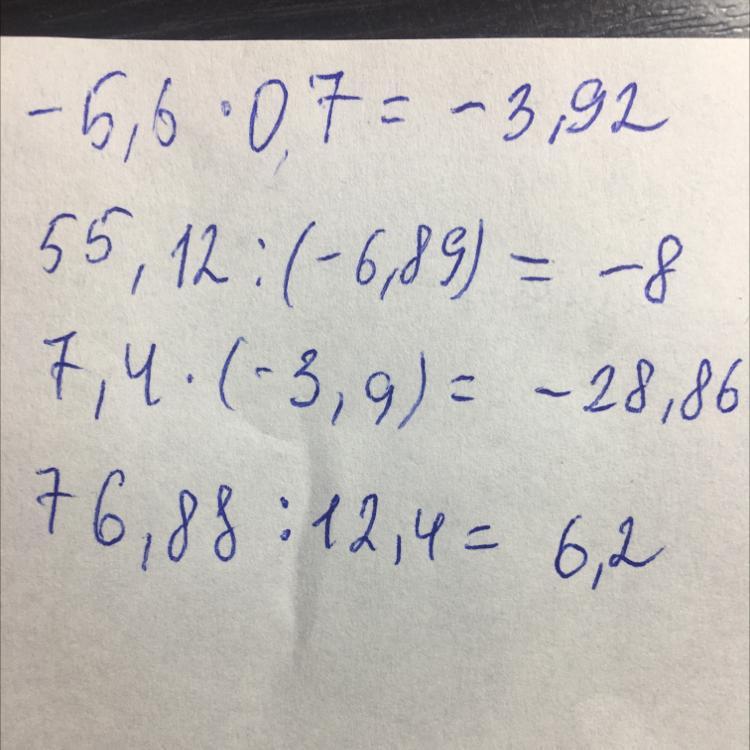 -5,6 · 0,7 = -3,92
55,12 : (-6,89) = -8
7,4 · (-3,9) = -28,86
76,88 : 12,4 = 6,2